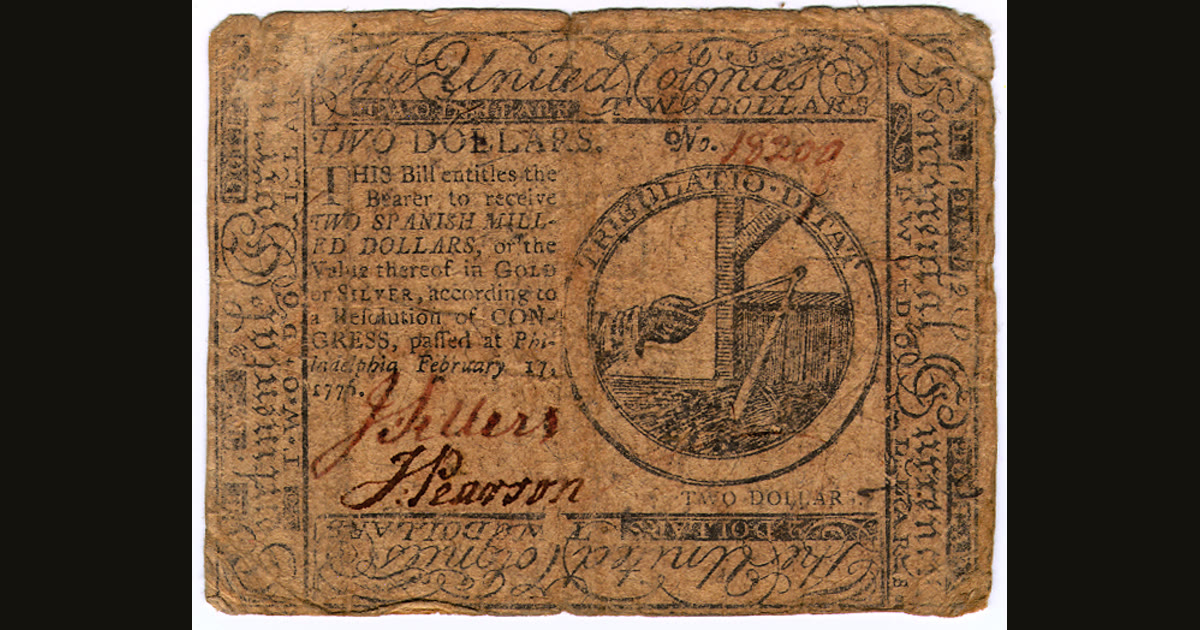 The United Colonies
TWO DOLLARS
TWO DOLLARS. No. 18209
THIS Bill entitles the
Bearer to receive
TWO SPANISH MILL-
ED DOLLARS, or the
Value thereof in GOLD
or SILVER, according to
a Resolution of CON-
GRESS, passed at Phi-
ladelphia February 17,
1776.
J Sellers
J. Pearson
TRIBULATIO·DITAT
TWO DOLLARS
Continental Currency
TWO DOLLARS
Continental Currency
TWO DOLLARS
DOLLARS
The United Colonies